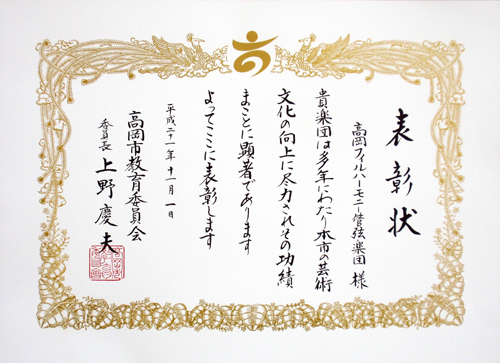 表彰状
高岡フィルハーモニー管弦楽団 様
貴楽団は多年にわたり本市の芸術
文化の向上に尽力されその功績
まことに顕著であります
よってここに表彰します
平成二十一年十一月一日
高岡市教育委員会
委員長 上野慶夫